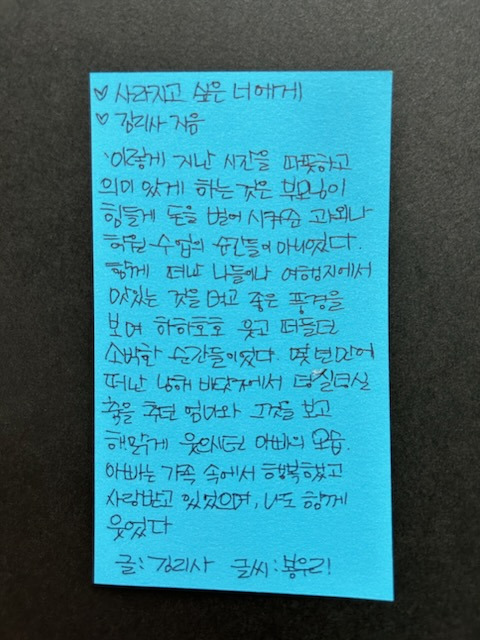 ♡ 사라지고 싶은 너에게
♡ 김리사 지음
'이렇게 지난 시간을 따뜻하고
의미 있게 하는 것은 부모님이
힘들게 돈을 벌어 시켜준 과외나
학원 수업의 순간들이 아니었다.
함께 떠난 나들이나 여행지에서
맛있는 것을 먹고 좋은 풍경을
보며 하하호호 웃고 떠들던
소박한 순간들이었다. 몇 년 만에
떠난 남해 바닷가에서 덩실덩실
춤을 추던 엄마와 그것을 보고
해맑게 웃으시던 아빠의 모습.
아빠는 가족 속에서 행복했고
사랑받고 있었으며, 나도 함께
웃었다
글: 김리사 글씨: 봉우리